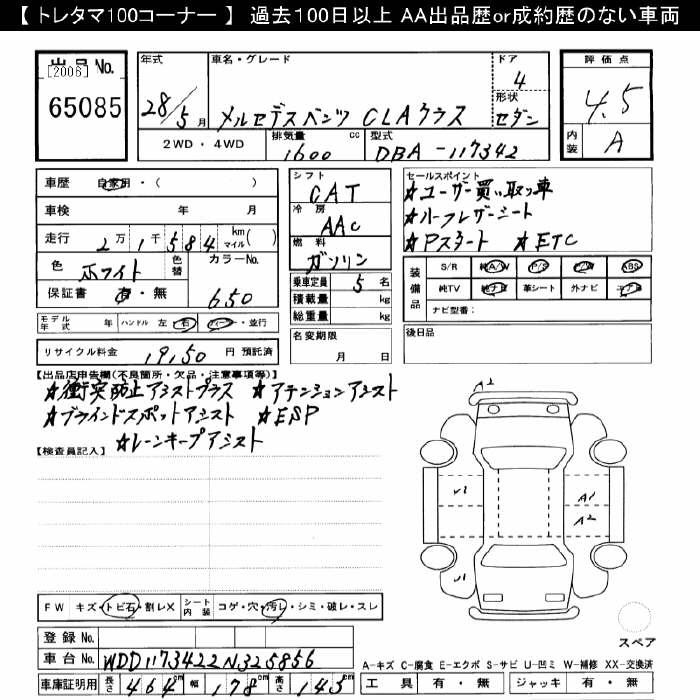 【 トレタマ100コーナー 】 過去100日以上 AA出品歴or成約歴のない車両
出品No.
[2006]
65085
年式
28/5月
車名・グレード
メルセデスベンツ CLAクラス
ドア
4
形状
セダン
2WD・4WD
排気量 cc
1600
型式
DBA-117342
評価点
4.5
内装
A
車歴 自家用・( )
車検 年 月
走行 2万1千584 km マイル( )
色 ホワイト 色替
カラーNo.
650
保証書 有・無
モデル年式 年 ハンドル 左 右 ディーラー・並行
リサイクル料金 19,50 円 預託済
シフト
CAT
冷房
AAC
燃料
ガソリン
乗車定員 5 名
積載量 kg
総重量 kg
名変期限
月 日
セールスポイント
★ユーザー買い取り車
★ハーフレザーシート
★Pスタート ★ETC
装備品
S/R 純A/W P/S P/W ABS
純TV 純ナビ 革シート 外ナビ エアB
ナビ型番:
後日品
【出品店申告欄(不良箇所・欠品・注意事項等)】
★衝突防止アシストプラス ★アテンションアシスト
★ブラインドスポットアシスト ★ESP
★レーンキープアシスト
【検査員記入】
A2
A1
A2
FW キズ・トビ石・割レX シート内装 コゲ・穴・汚レ・シミ・破レ・スレ
登録No.
車台No. WDD1173422N325856
車庫証明用 長さ 464cm 幅 178cm 高さ 143cm
スペア
A-キズ C-腐食 E-エクボ S-サビ U-凹ミ W-補修 XX-交換済
工具 有・無 ジャッキ 有・無